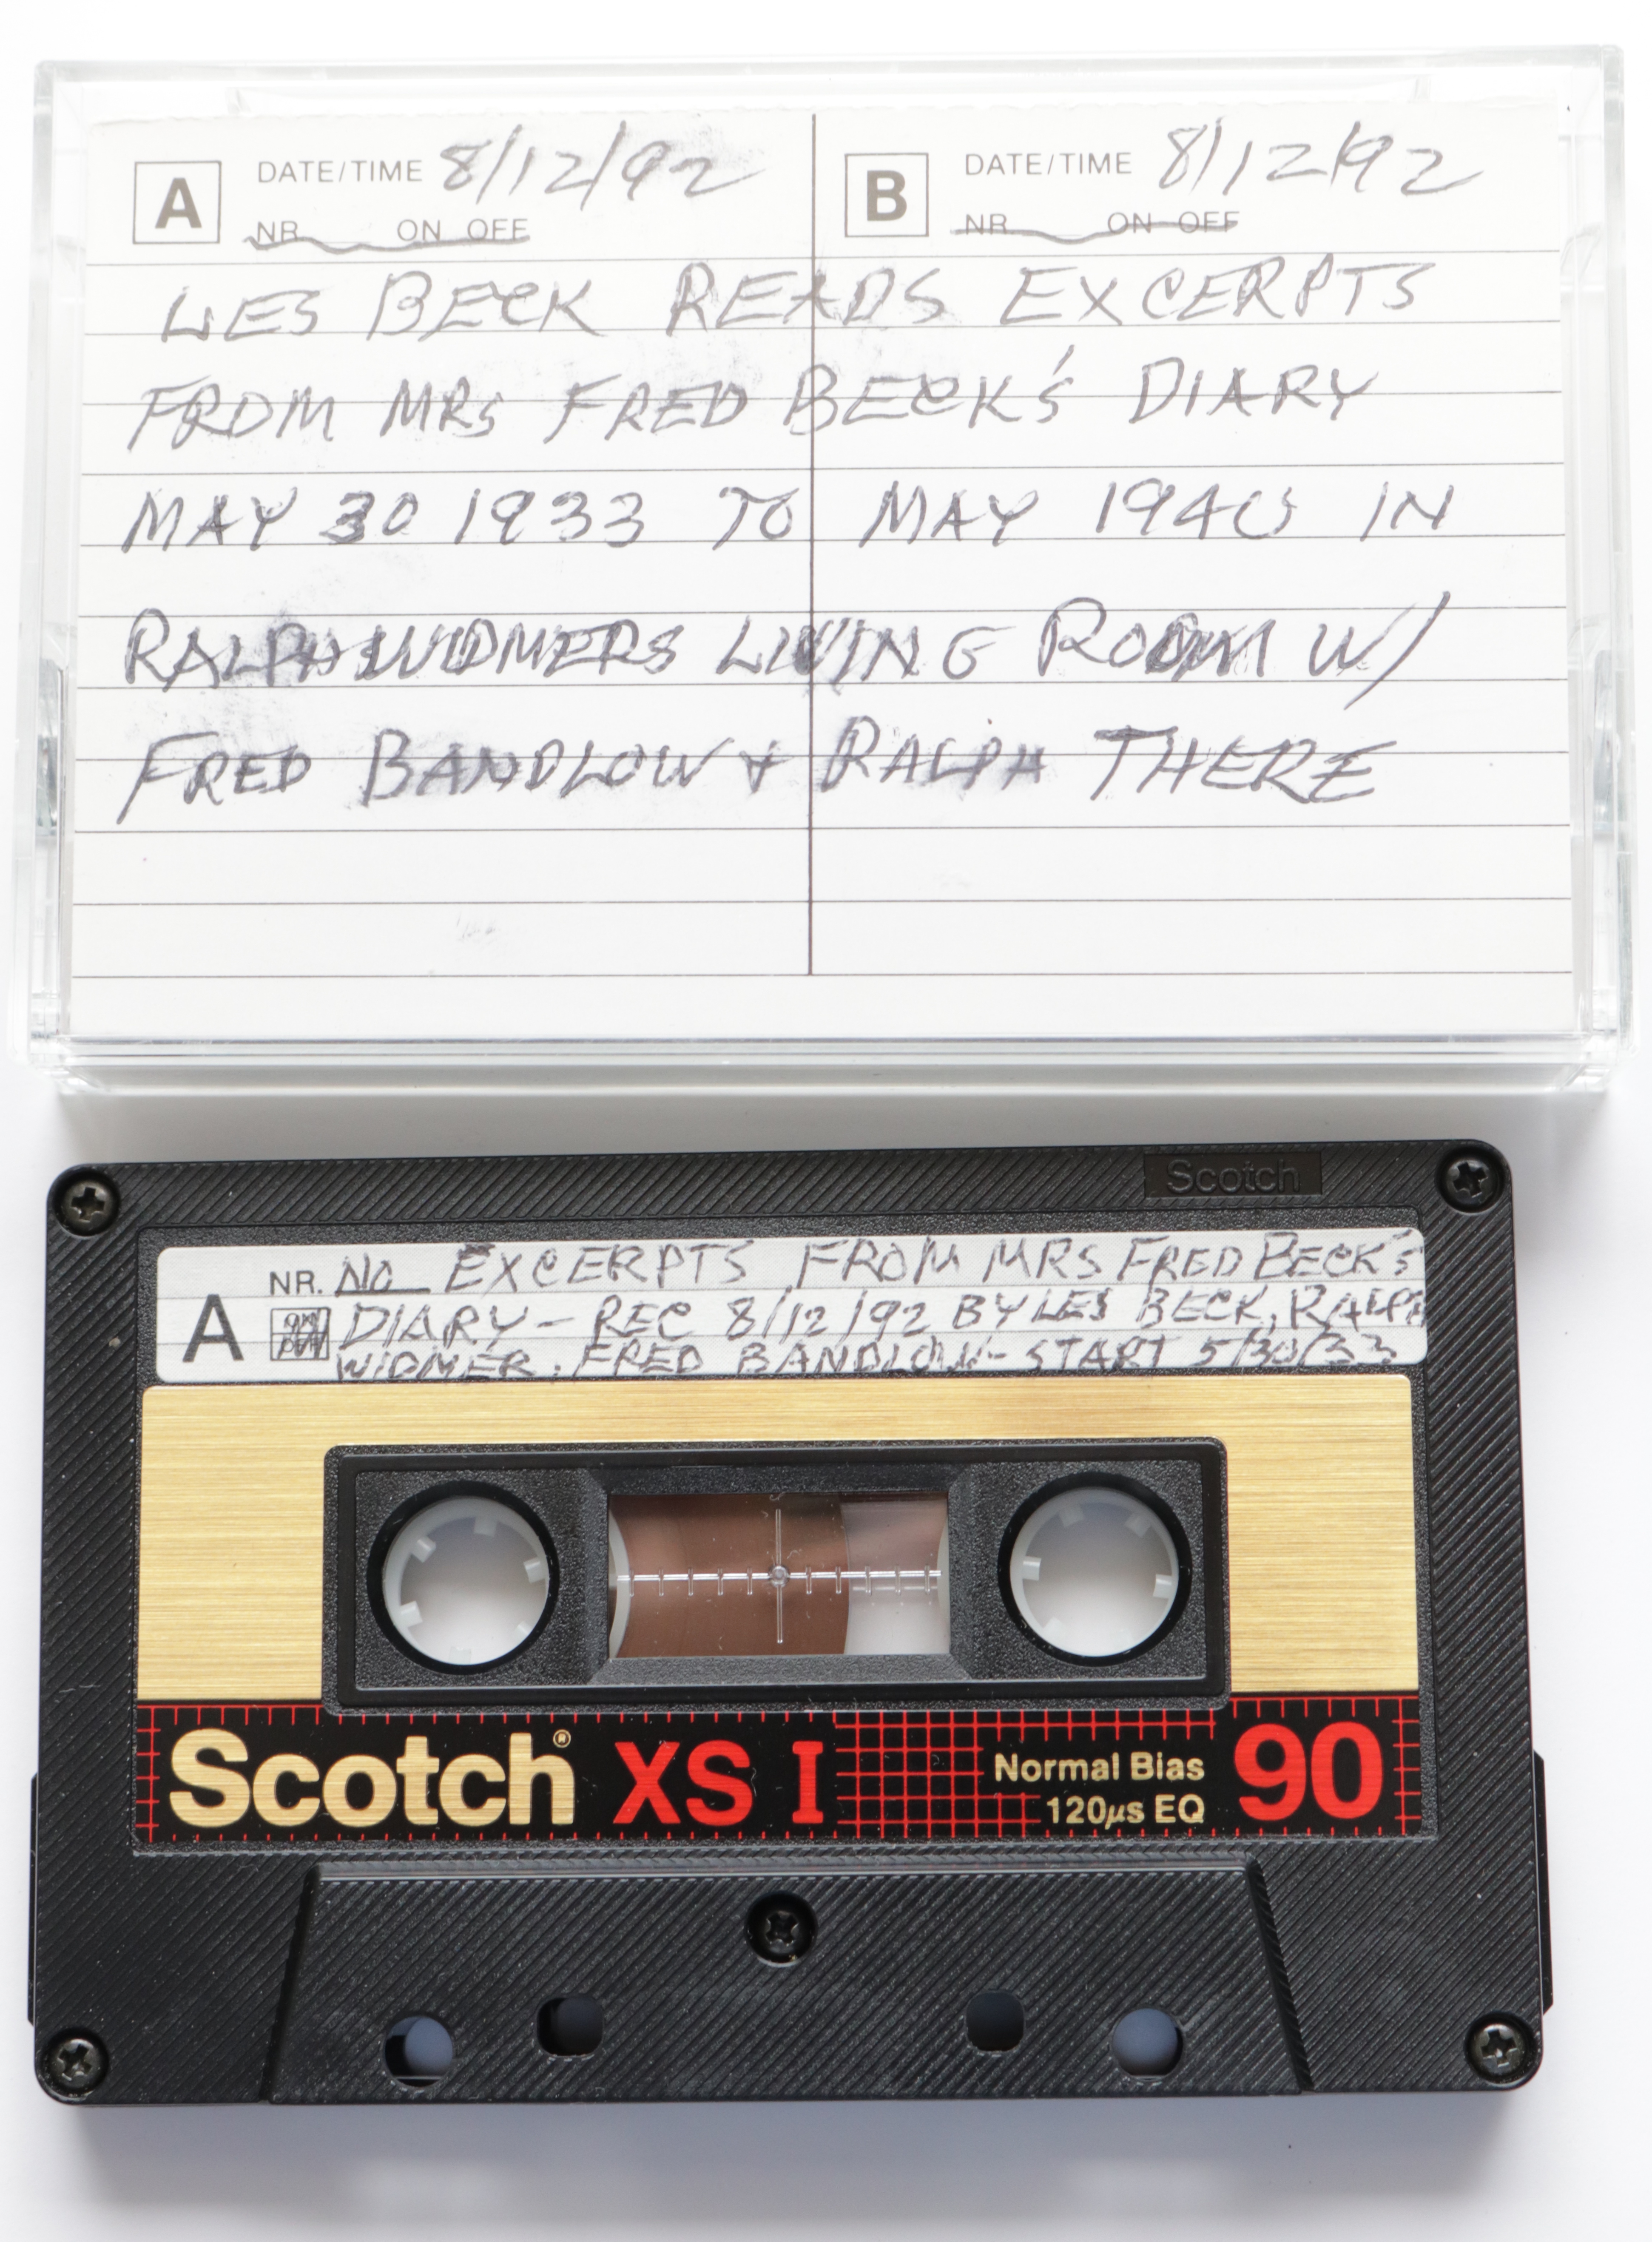 A DATE/TIME 8/12/92 B DATE/TIME 8/12/92
NR ON OFF NR ON OFF
LES BECK READS EXCERPTS
FROM MRS FRED BECK'S DIARY
MAY 30 1933 TO MAY 1940 IN
RALPH WIDMERS LIVING ROOM W/
FRED BANDLOW + RALPH THERE
Scotch
A NR. NO EXCERPTS FROM MRS FRED BECK'S
DIARY - REC 8/12/92 BY LES BECK, RALPH
WIDMER, FRED BANDLOW - START 5/30/33
Scotch® XS I Normal Bias 120µs EQ 90